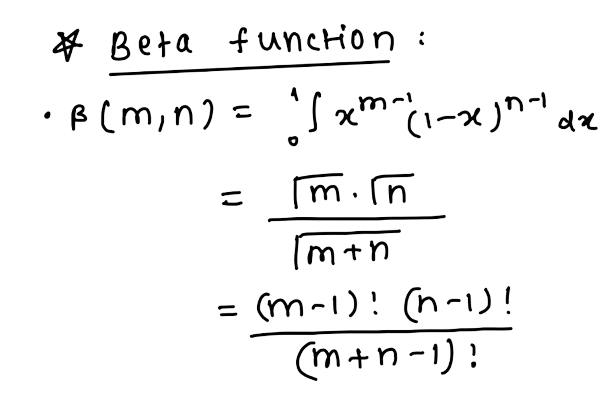 ☆ Beta function :
· β(m,n) = ₀¹∫ x^(m-1) (1-x)^(n-1) dx
= (Γm · Γn) / Γ(m+n)
= (m-1)! (n-1)! / (m+n-1)!